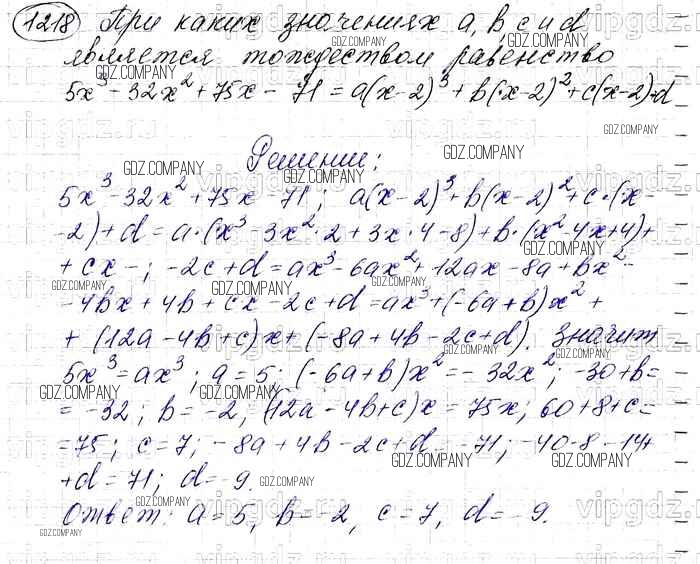 1218 При каких значениях a, b c и d
является тождеством равенство
5x³ - 32x² + 75x - 71 = a(x-2)³ + b(x-2)² + c(x-2)+d
Решение;
5x³ - 32x² + 75x - 71; a(x-2)³ + b(x-2)² + c·(x-
-2) + d = a·(x³ - 3x²·2 + 3x·4 - 8) + b·(x² 4x+4)+
+ cx - ; -2c + d = ax³ - 6ax² + 12ax - 8a + bx² -
- 4bx + 4b + cx - 2c + d = ax³ + (-6a + b)x² +
+ (12a - 4b + c)x + (-8a + 4b - 2c + d). Значит
5x³ = ax³; a = 5; (-6a + b)x² = - 32x²; -30 + b =
= -32; b = -2, (12a - 4b + c)x = 75x; 60 + 8 + c =
= 75; c = 7; - 8a + 4b - 2c + d = -71; -40-8-14+
+d = 71; d = 9.
Ответ: a = 5, b = -2, c = 7, d = 9.
GDZ.COMPANY
vipgdz.ru